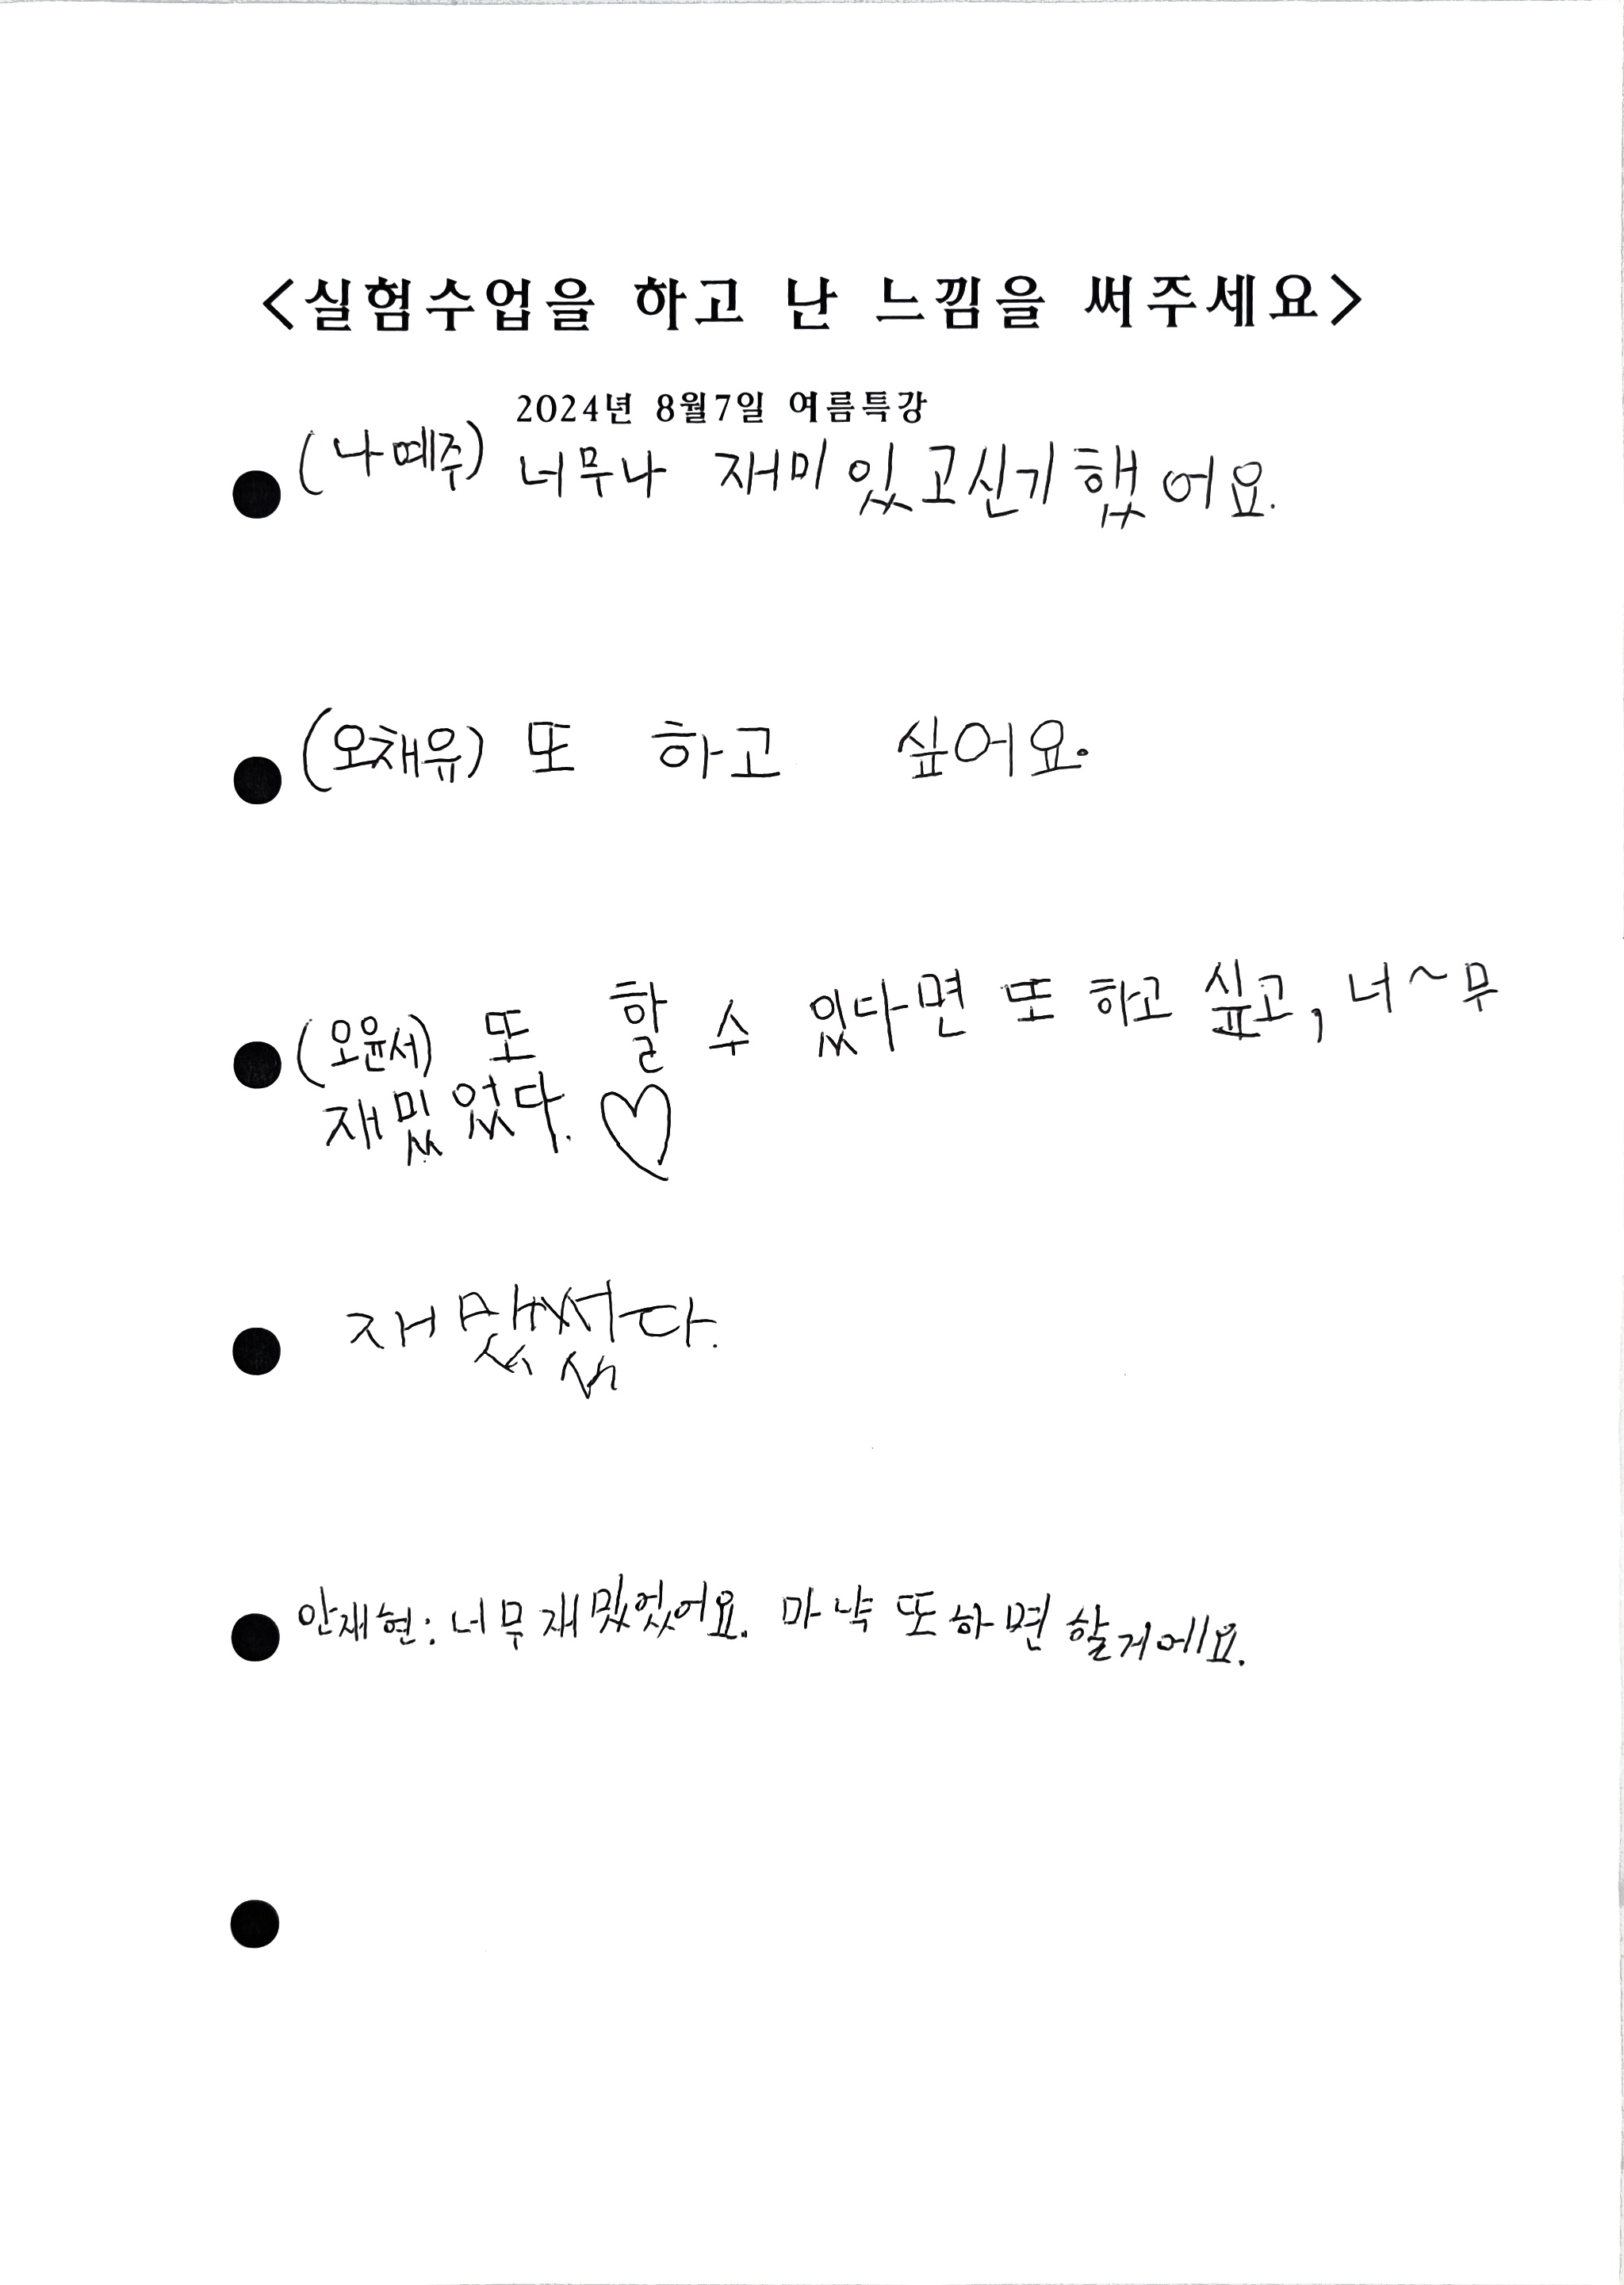 <실험수업을 하고 난 느낌을 써주세요>
2024년 8월7일 여름특강
(나예주) 너무나 재미있고신기했어요.
(오채유) 또 하고 싶어요.
(오윤서) 또 할 수 있다면 또 하고 싶고, 너~무
재밌었다. ♡
재밌썼다.
안재현: 너무 재밌었어요. 마냑 또 하면 할게에요.